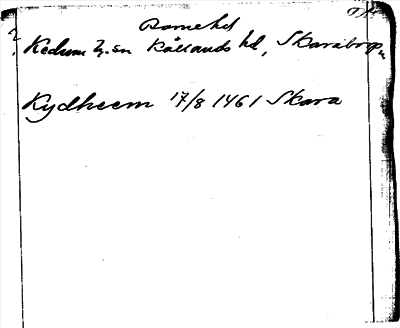 Barnehd
Kedum Z. sn Kållands hd, Skarabrgs
Kydheem 17/8 1461 Skara